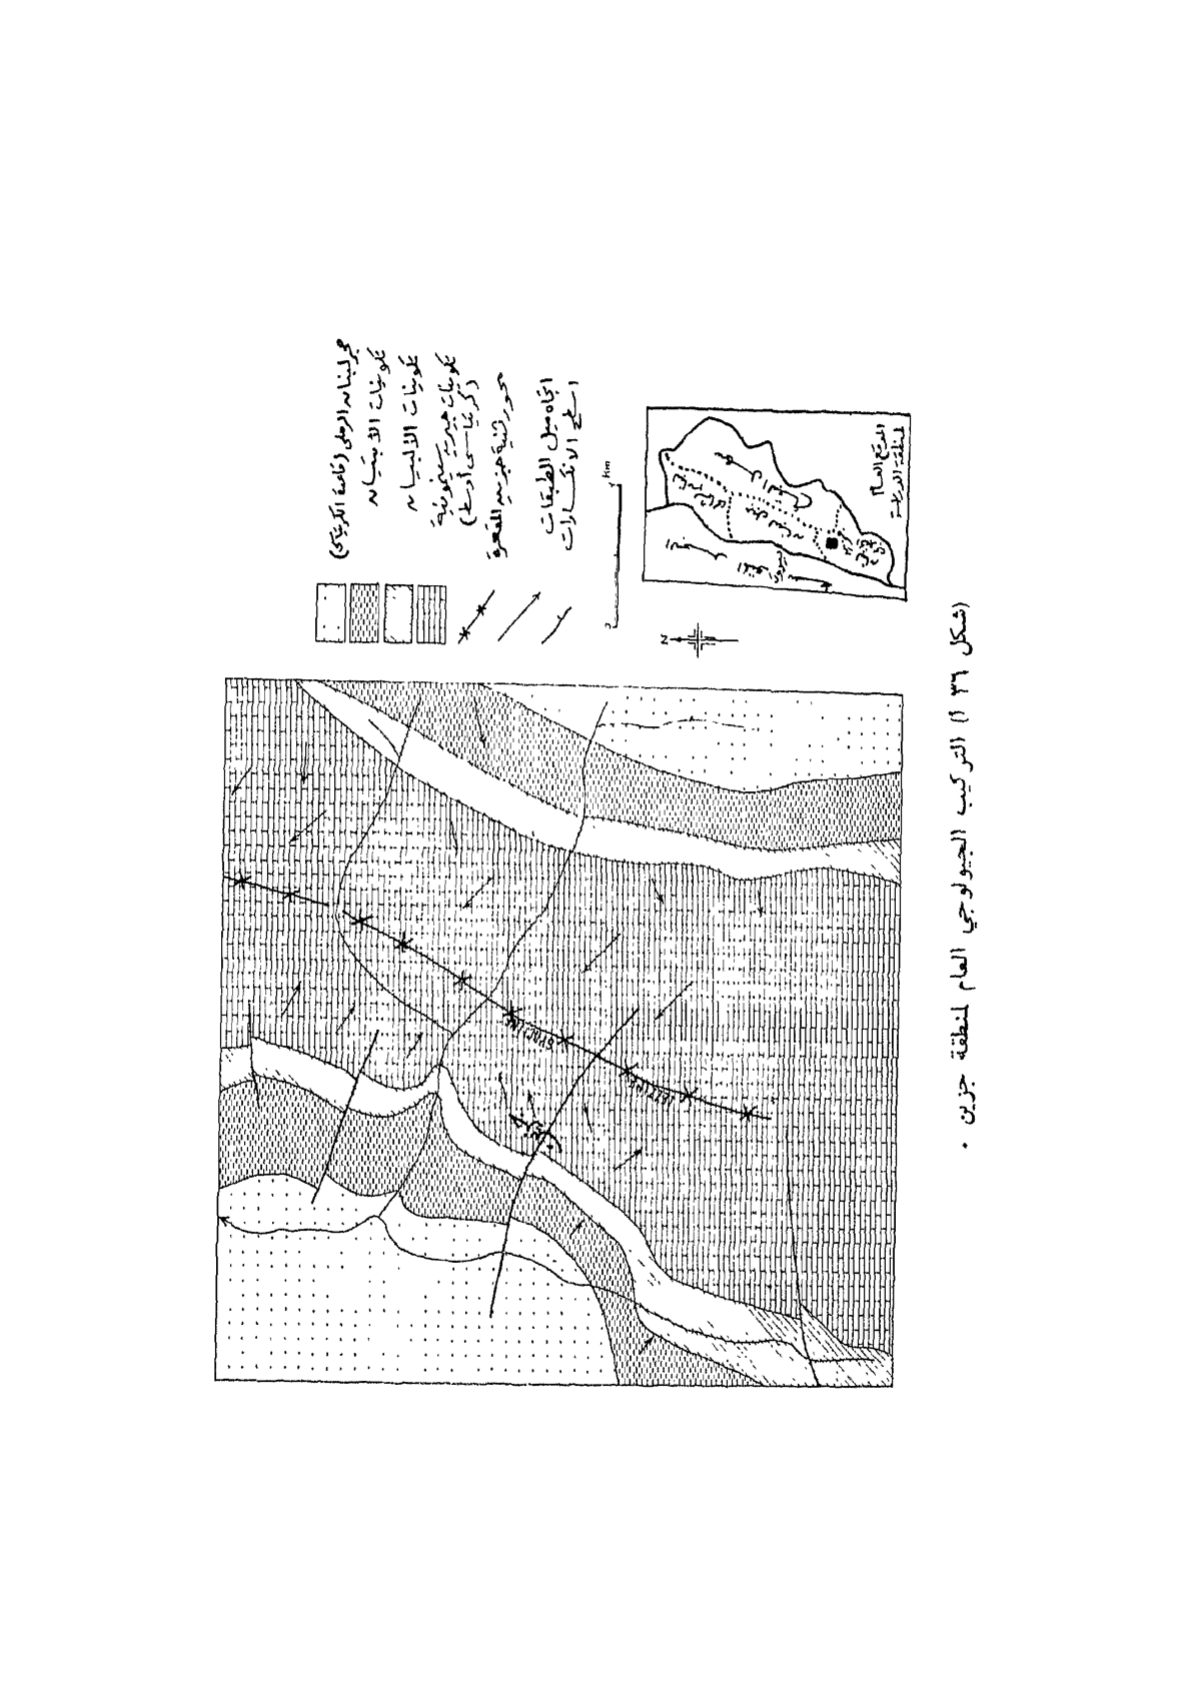 حجر لبنان الرملي (قاعدة الكريتاسي)
تكوينات الأبتيان
تكوينات الألبيان
تكوينات جيرية سينومونية
(كريتاسي أوسط)
محور ثنية جزين المقعرة
اتجاه ميل الطبقات
أسطح الانكسارات
0
Km
N
الموقع العام
لمنطقة الدراسة
جزين
SYNCLINE
JEZZINE
(شكل ٣٦ أ) التركيب الجيولوجي العام لمنطقة جزين .